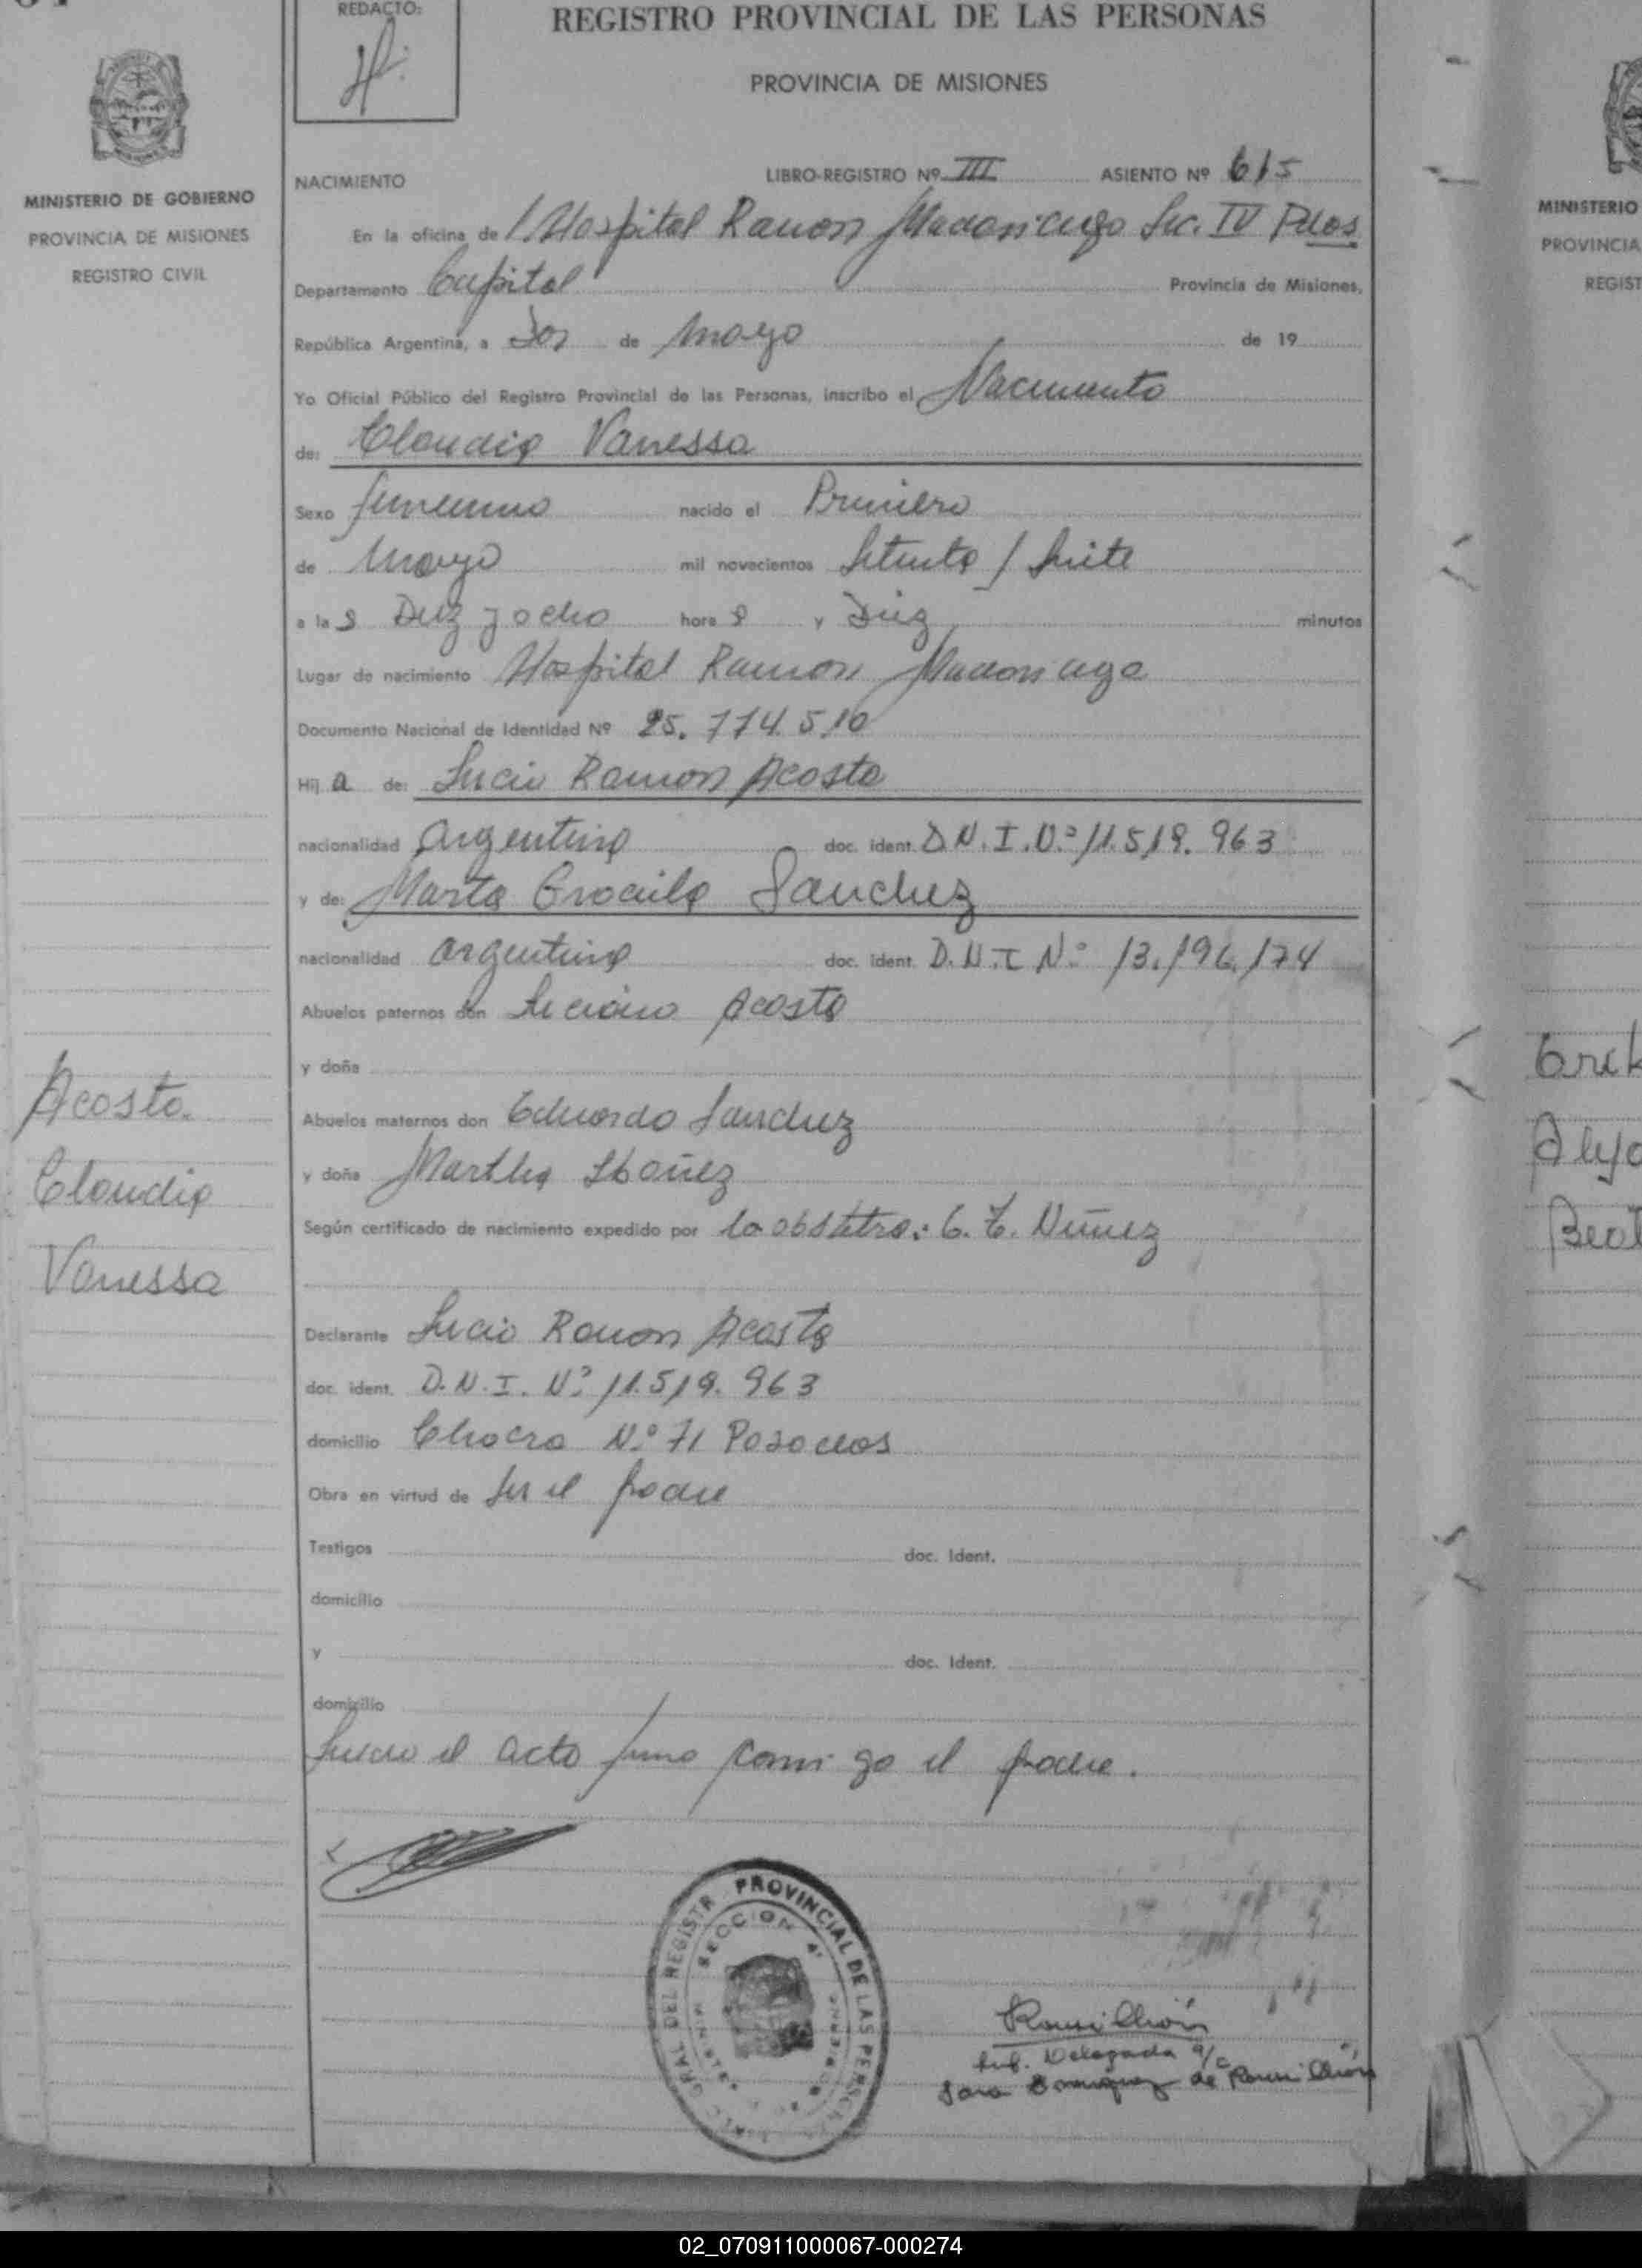 REDACTO:
REGISTRO PROVINCIAL DE LAS PERSONAS
PROVINCIA DE MISIONES
MINISTERIO DE GOBIERNO
PROVINCIA DE MISIONES
REGISTRO CIVIL
NACIMIENTO LIBRO-REGISTRO Nº III ASIENTO Nº 615
En la oficina de Hospital Ramon Madariaga Sec. IV Pdas
Departamento Capital Provincia de Misiones,
República Argentina, a Dos de Mayo de 19
Yo Oficial Público del Registro Provincial de las Personas, inscribo el Nacimiento
de: Claudia Vanessa
Sexo femenino nacido el Primero
de Mayo mil novecientos Setenta / Siete
a las Diez y ocho horas y Diez minutos
Lugar de nacimiento Hospital Ramon Madariaga
Documento Nacional de Identidad Nº 25.774.510
Hij a de: Lucio Ramon Acosta
nacionalidad argentina doc. ident. D.N.I.Nº 11.519.963
y de: Marta Sanchez
nacionalidad argentina doc. ident. D.N.I Nº 13.196.174
Abuelos paternos don Acosta
y doña
Abuelos maternos don Eduardo Sanchez
y doña Martha Ibañez
Según certificado de nacimiento expedido por la obstetra: Nuñez
Declarante Lucio Ramon Acosta
doc. ident. D.N.I. Nº 11.519.963
domicilio Chacra Nº 71 Posadas
Obra en virtud de ser el padre
Testigos doc. Ident.
domicilio
y doc. Ident.
domicilio
el acto firma conmigo el padre.
Acosta
Claudia
Vanessa
PROVINCIAL DE LAS PERSO
GRAL DEL REGISTR
SECCION 4ª
Rousillhión
Sub. Delegada a/c
Sara Dominguez de Rousillhión
MINISTERIO
PROVINCIA
REGIST
Beat
02_070911000067-000274